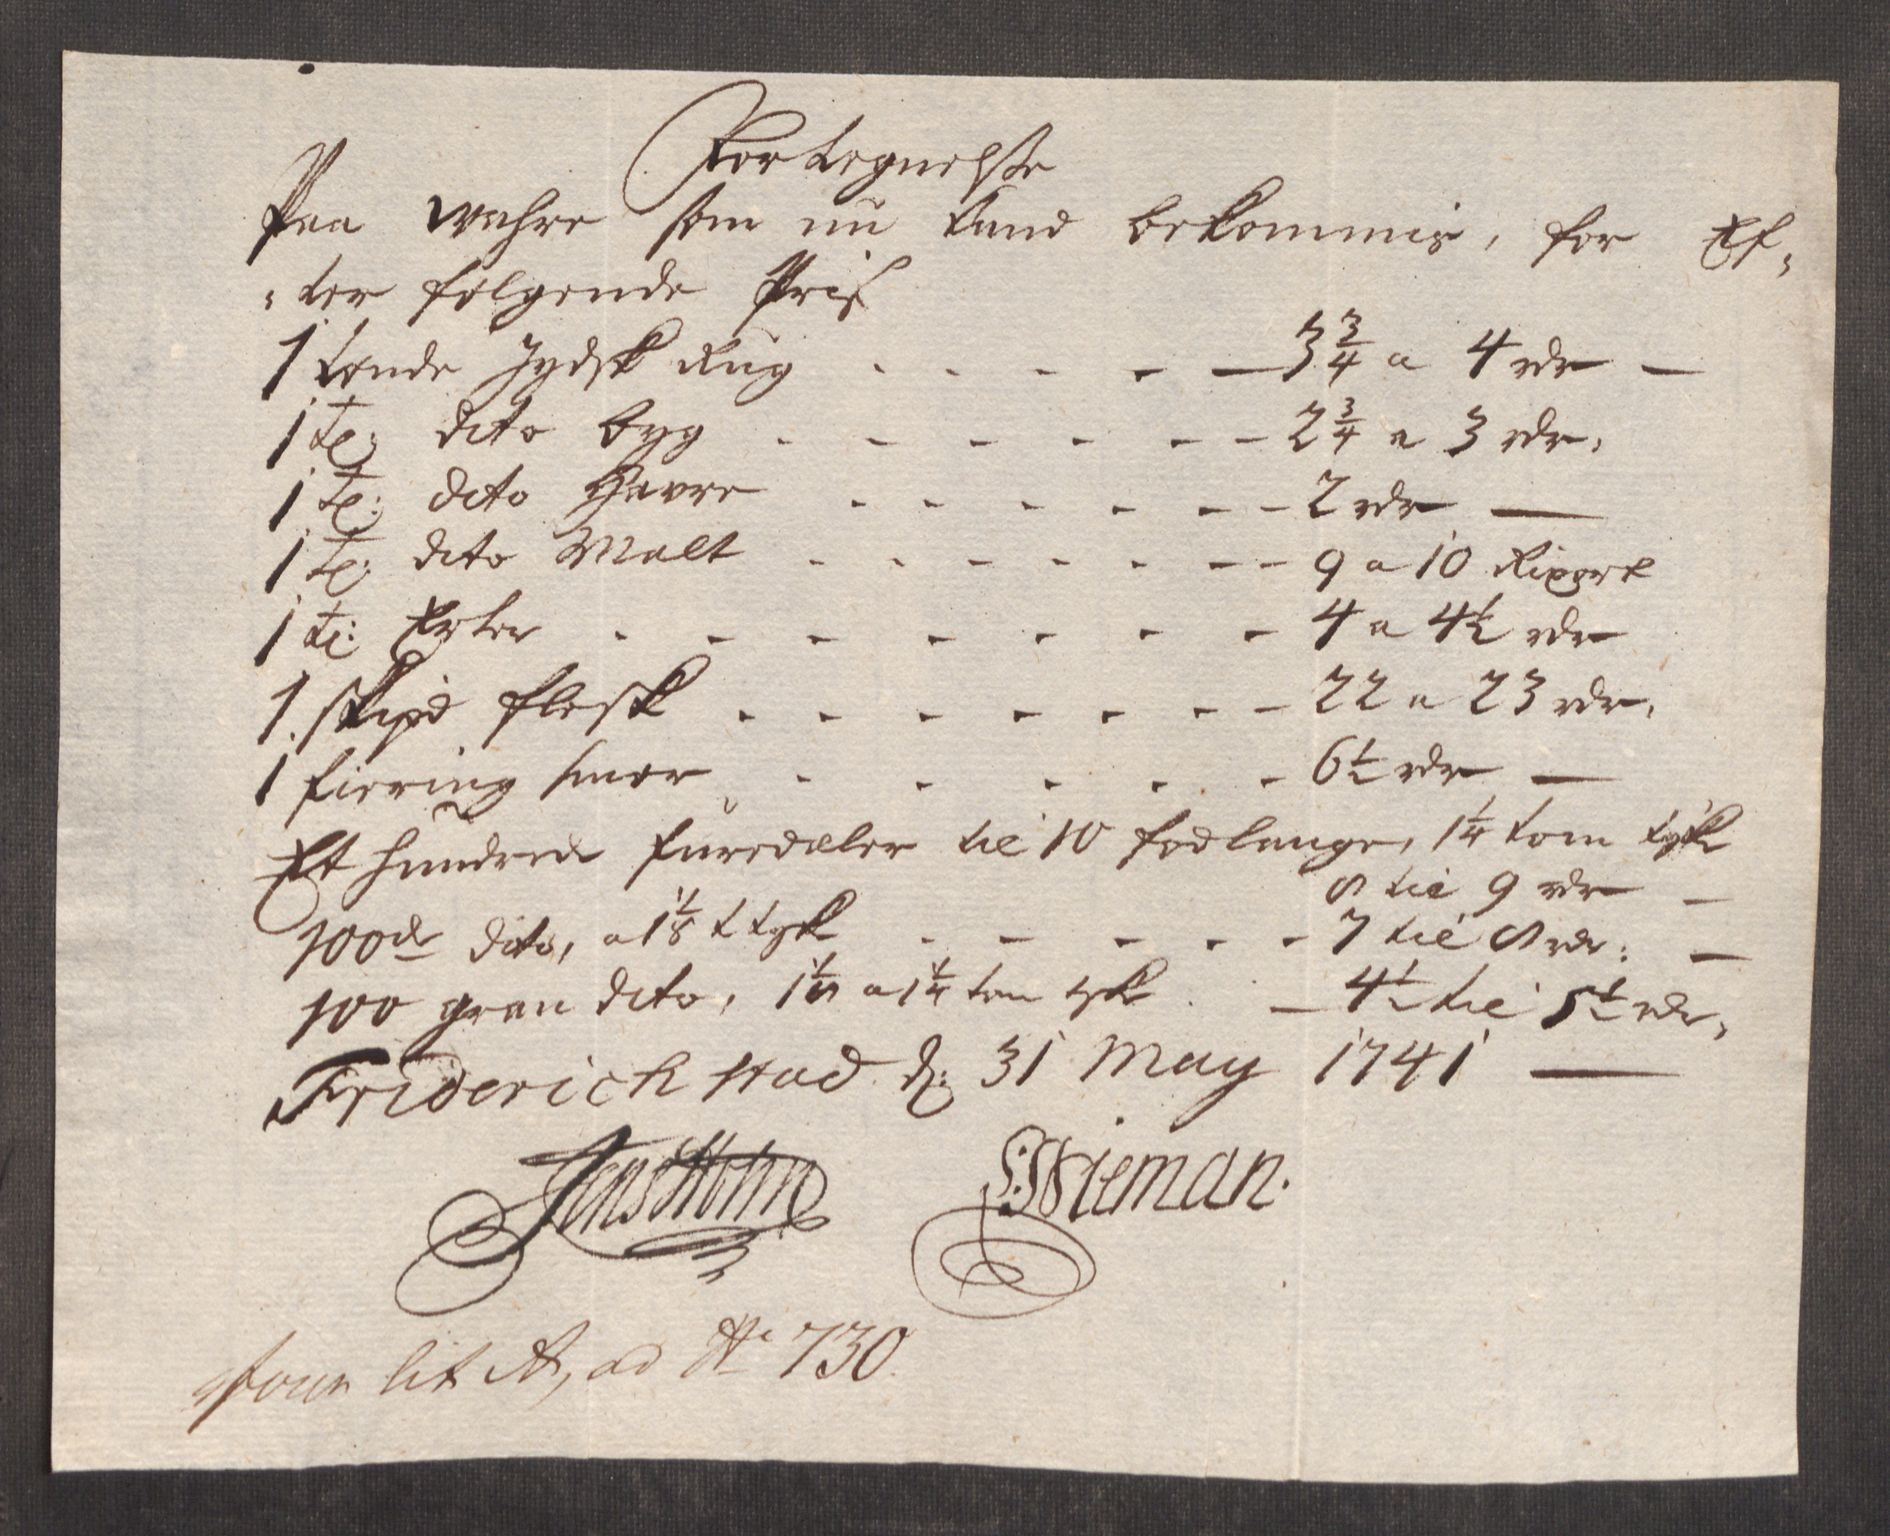 Fortegnelse
Paa wahre som nu kand bekommis, for Ef-
-ter følgende Pris
1 tønde Jydsk Rug - - - - - 3 3/4 a 4 rdr -
1 tø: dito byg - - - - - - 2 3/4 a 3 rdr,
1 tø: dito Havre - - - - - - 2 rdr -
1 tø: dito Malt - - - - - - - 9 a 10
1 tø: Erter - - - - - - - 4 a 4 1/2 rdr
1. skipd flesk - - - - - - - 22 a 23 rdr,
1 fiering smør - - - - - 6 1/2 rdr -
Et hundrede furedæler til 10 fod lange, 1 1/4 tom tyk
8 til 9 rdr -
100de dito, a 1 1/8 t tyk - - - - - 7 til 8 rdr: -
100 gran dito, 1 1/8 a 1 1/4 tom tyk - 4 1/2 til 5 1/2 rdr,
Friderichstad d: 31 May 1741 -
Jens Holm Wieman.
lit A, ad No 730.